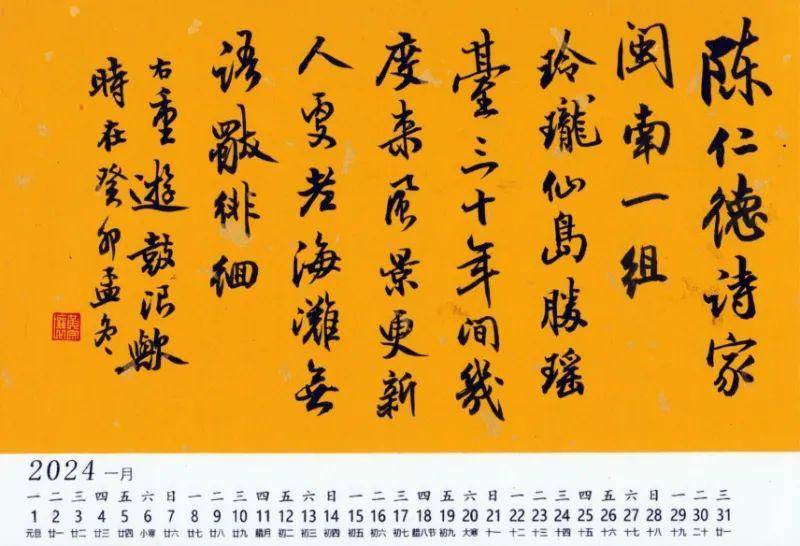 陈仁德诗家
闽南一组
玲瓏仙島勝瑶
臺三十年间幾
度来风景更新
人更老海灘無
語徘徊
右重遊鼓浪嶼
時在癸卯孟冬
2024 一月
一 二 三 四 五 六 日 一 二 三 四 五 六 日 一 二 三 四 五 六 日 一 二 三 四 五 六 日 一 二 三
1 2 3 4 5 6 7 8 9 10 11 12 13 14 15 16 17 18 19 20 21 22 23 24 25 26 27 28 29 30 31
元旦 廿一 廿二 廿三 廿四 小寒 廿六 廿七 廿八 廿九 腊月 初二 初三 初四 初五 初六 初七 腊八节 初九 大寒 十一 十二 十三 十四 十五 十六 十七 十八 十九 二十 廿一